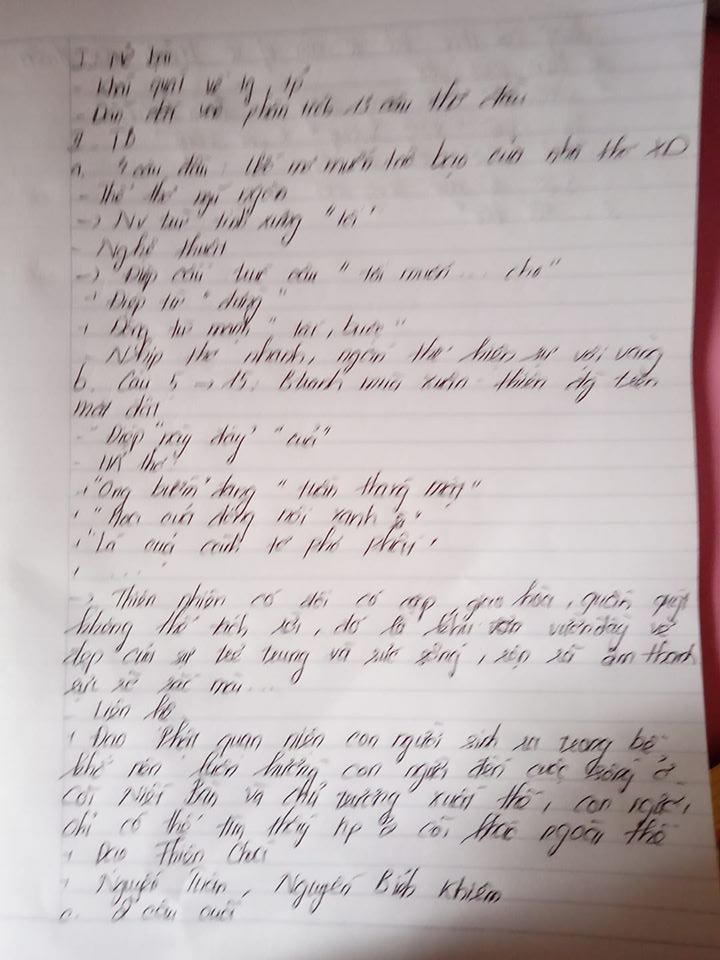 I. Mở bài
- Khái quát về tg, tp
- Dẫn dắt vào phân tích 13 câu thơ đầu
II. TB
a. 4 câu đầu: Ước mơ muốn táo bạo của nhà thơ XD
- Thể thơ ngũ ngôn
-> NV trữ tình xưng "tôi"
- Nghệ thuật
-> Điệp cấu trúc câu "tôi muốn ... cho"
+ Điệp từ "đừng"
+ Động từ mạnh "tắt, buộc"
- Nhịp thơ nhanh, ngắn thể hiện sự vội vàng
b. Câu 5 -> 13: Bức tranh mùa xuân - thiên đg trên
mặt đất
- Điệp "này đây" "của"
- HA thơ:
+ "Ong bướm" đang "tuần tháng mật"
+ "Hoa của đồng nội xanh rì"
+ "Lá của cành tơ phơ phất"
+ ....
-> Thiên nhiên có đôi có cặp, giao hòa, quấn quýt
không thể tách rời, đó là khu vườn đầy vẻ
đẹp của sự trẻ trung và sức sống, rộn rã âm thanh
rực rỡ sắc màu...
- Liên hệ
+ Đạo Phật quan niệm con người sinh ra trong bể
khổ nên luôn hướng con người đến cuộc sống ở
cõi Niết Bàn và chủ trương xuất thế, con người
chỉ có thể tìm thấy hp ở cõi khác ngoài thế
+ Đạo Thiên Chúa
+ Nguyễn Tuân, Nguyễn Bỉnh Khiêm
c. 2 câu cuối